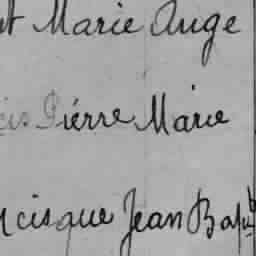 et Marie Ange
cis Pierre Marie
ncisque Jean Bap